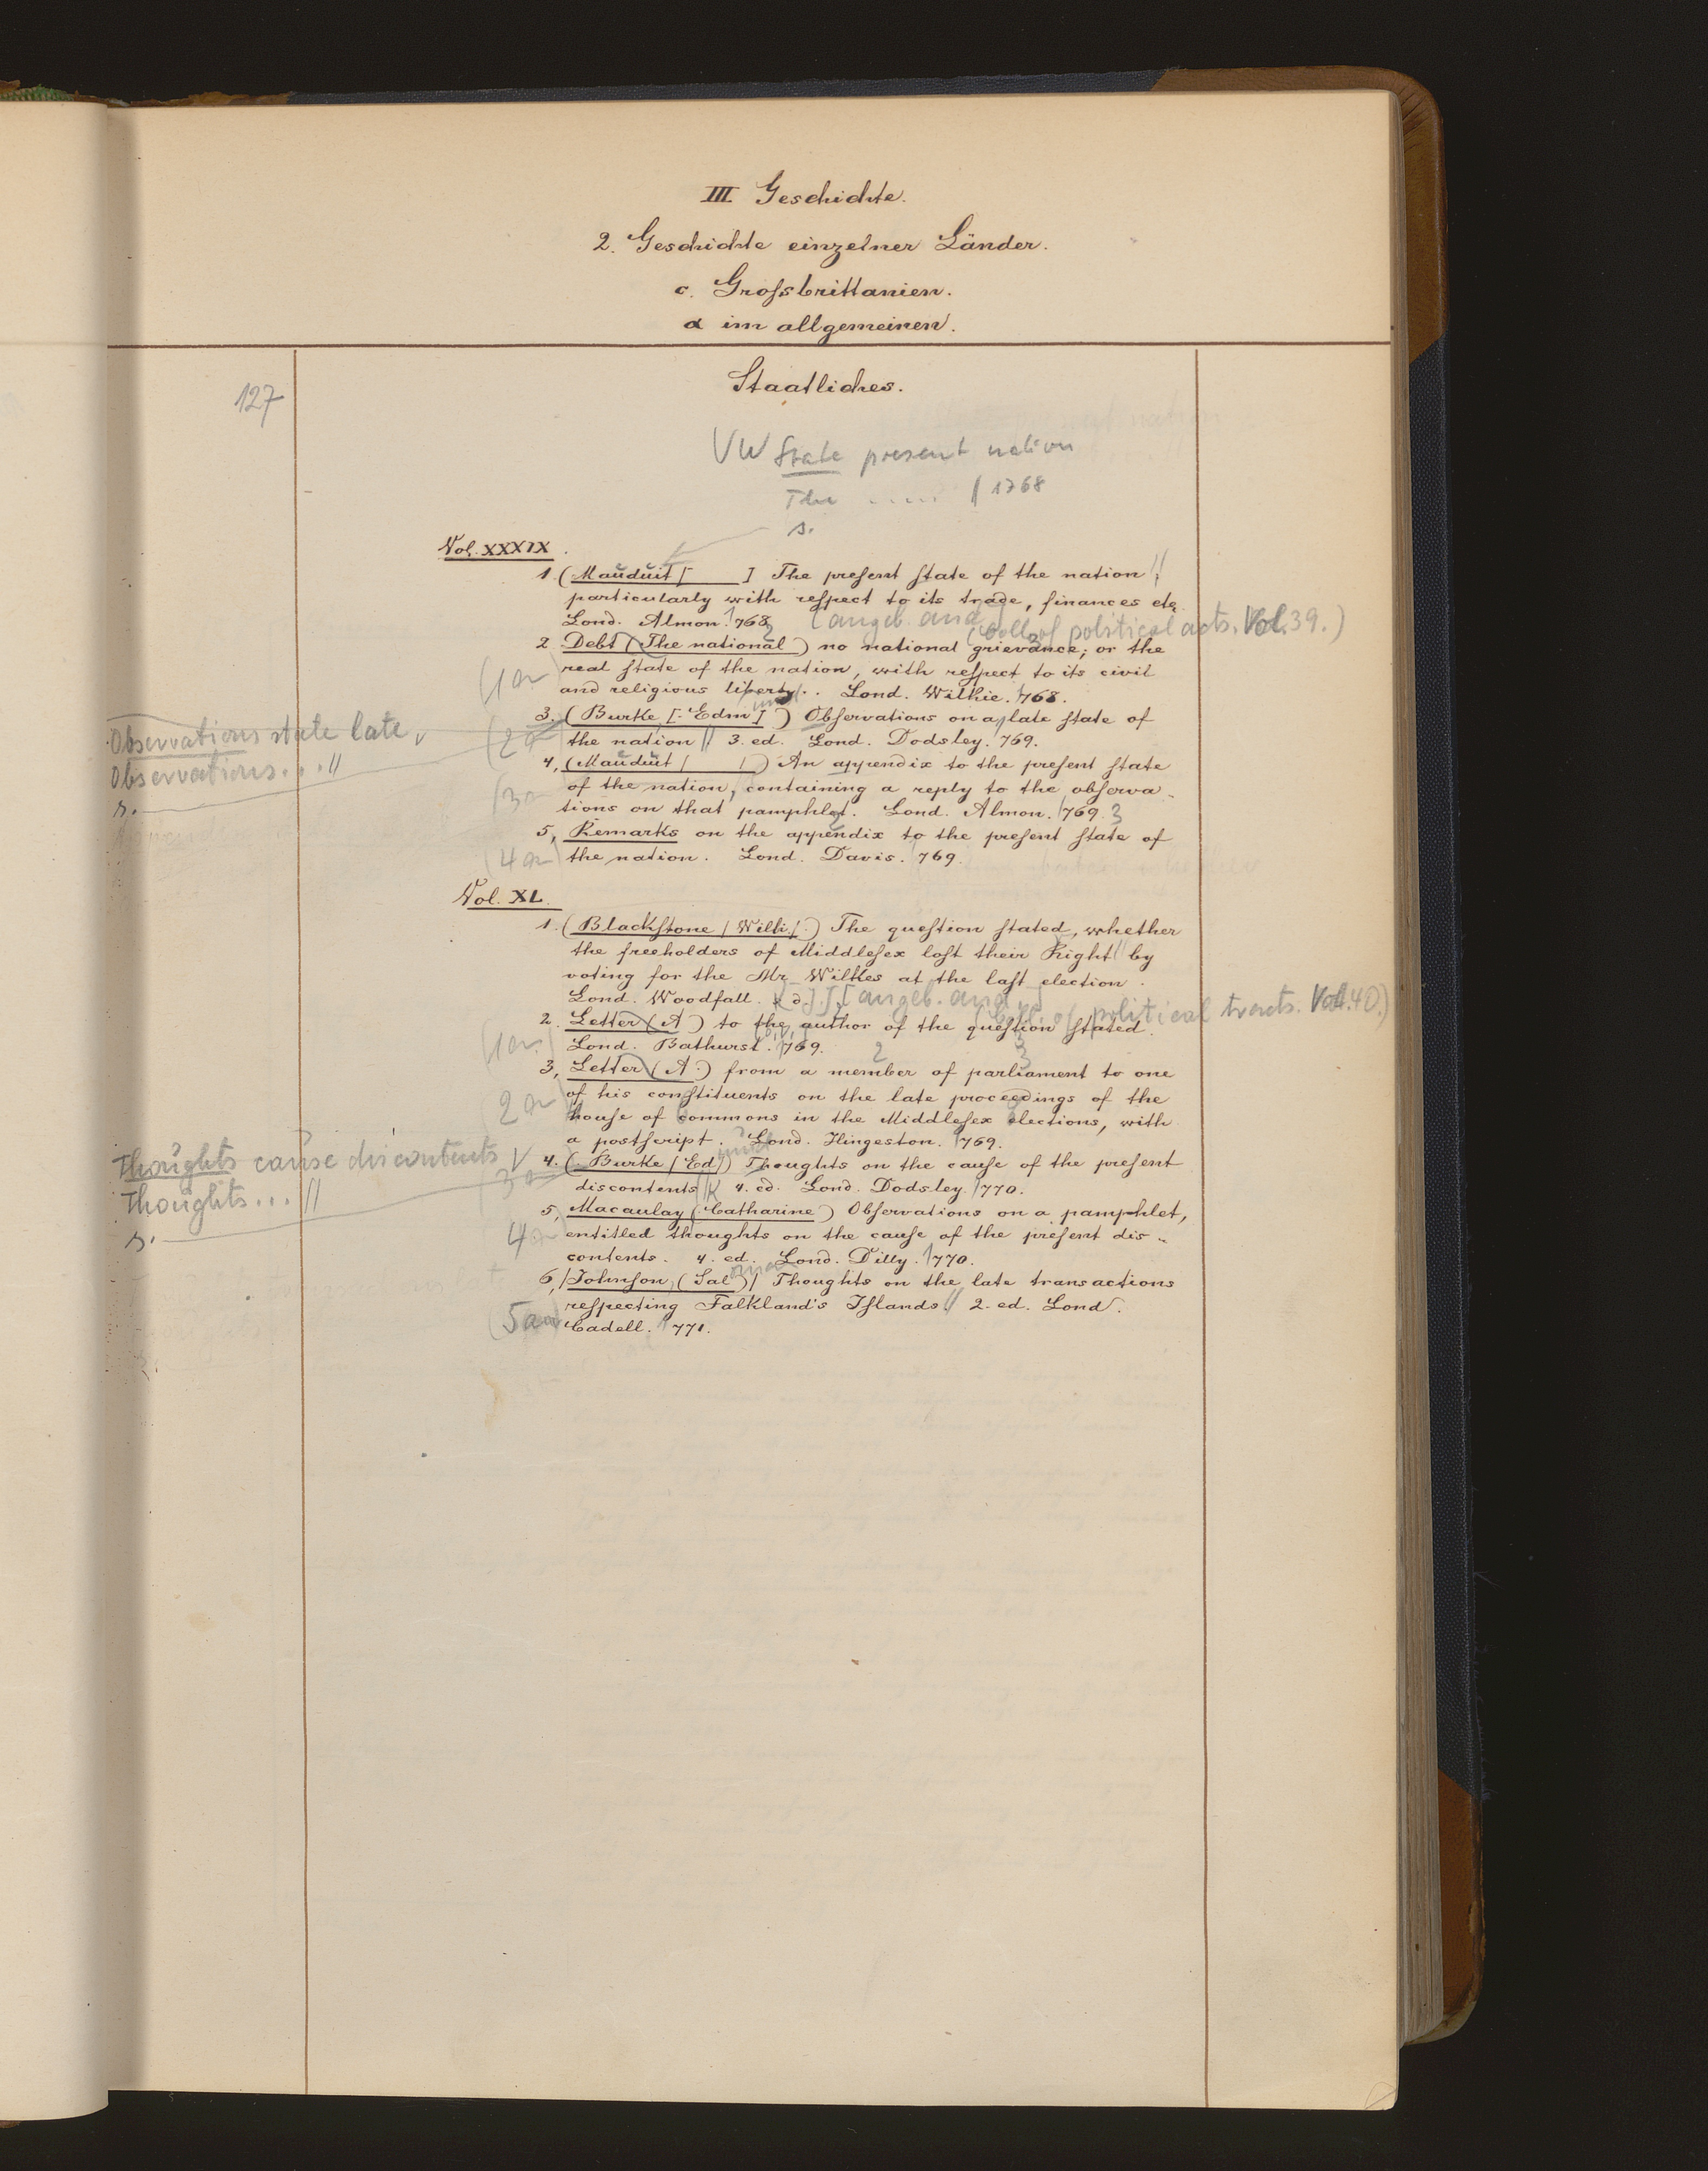 III. Geschichte.
2. Geschichte einzelner Länder.
c. Grossbrittanien.
α im allgemeinen.
127
Staatliches.
VW State present nation
The ..... // 1768
s.
Vol. XXXIX.
1. (Mauduit [ ] The present state of the nation //
particularly with respect to its trade, finances etc.
Lond. Almon. 1768. [angeb. an:]
(Coll. of political acts. Vol. 39.)
2 Debt (The national) no national grievance; or the
(1an) real state of the nation, with respect to its civil
and religious liberty. Lond. Wilkie. 1768.
3. (Burke [Edmund]) Observations on a late state of
(2an) the nation // 3. ed. Lond. Dodsley. 769.
Observations state late,
Observations... //
s.
4, (Mauduit / /) An appendix to the present state
(3an) of the nation, containing a reply to the observa-
tions on that pamphlet. Lond. Almon. 1769. 3
5, Remarks on the appendix to the present state of
(4an) the nation. Lond. Davis. 769.
Vol. XL.
1. (Blackstone / Will. /.) The question stated, whether
the freeholders of Middlesex lost their Right // by
voting for the Mr. Wilkes at the last election.
Lond. Woodfall. [angeb. an:]
(Coll. of political tracts. Vol. 40.)
2. Letter (A) to the author of the question stated.
(1an) Lond. Bathurst. 1769. 2 3
3, Letter (A.) from a member of parliament to one
2an of his constituents on the late proceedings of the
house of commons in the Middlesex elections, with
a postscript. Lond. Hingeston. 1769.
Thoughts cause discontents V
Thoughts... //
s.
4. (Burke / Edmund) Thoughts on the cause of the present
(3an discontents // 4. ed. Lond. Dodsley. 1770.
5, Macaulay (Catharine) Observations on a pamphlet,
4an entitled thoughts on the cause of the present dis-
contents. 4. ed. Lond. Dilly. 1770.
6, /Johnson, (Sal)/ Thoughts on the late transactions
respecting Falkland's Islands. // 2. ed. Lond.
(5an Cadell. 1771.